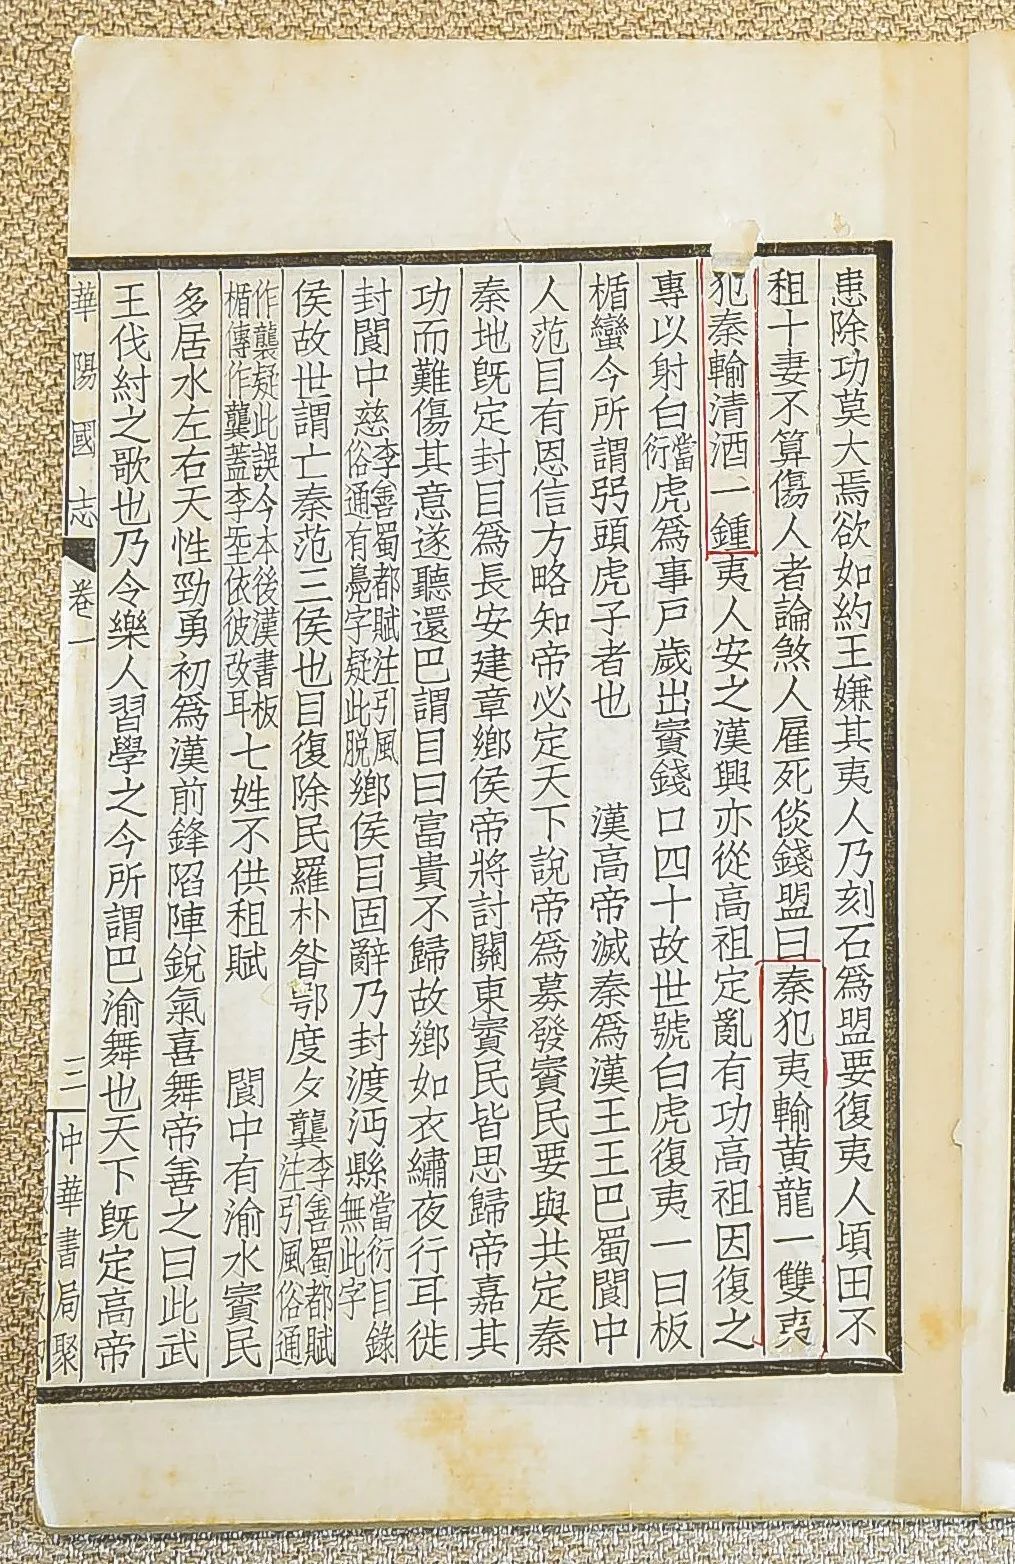 患除功莫大焉欲如約王嫌其夷人乃刻石爲盟要復夷人頃田不
租十妻不算傷人者論煞人雇死倓錢盟曰秦犯夷輸黄龍一雙夷
犯秦輸清酒一鍾夷人安之漢興亦從高祖定亂有功高祖因復之
專以射白當衍虎爲事戸歲出賨錢口四十故世號白虎復夷一曰板
楯蠻今所謂弜頭虎子者也　漢高帝滅秦爲漢王王巴蜀閬中
人范目有恩信方略知帝必定天下說帝爲募發賨民要與共定秦
秦地旣定封目爲長安建章鄉侯帝將討關東賨民皆思歸帝嘉其
功而難傷其意遂聽還巴謂目曰富貴不歸故鄉如衣繡夜行耳徙
封閬中慈李善蜀都賦注引風俗通有鳧字疑此脫鄉侯目固辭乃封渡沔縣當衍目錄無此字
侯故世謂亡秦范三侯也目復除民羅朴昝鄂度夕龔李善蜀都賦注引風俗通
作襲疑此誤今本後漢書板楯傳作龔蓋李𡉏依彼改耳七姓不供租賦　閬中有渝水賨民
多居水左右天性勁勇初爲漢前鋒陷陣銳氣喜舞帝善之曰此武
王伐紂之歌也乃令樂人習學之今所謂巴渝舞也天下旣定高帝
華陽國志　卷一　三　中華書局聚